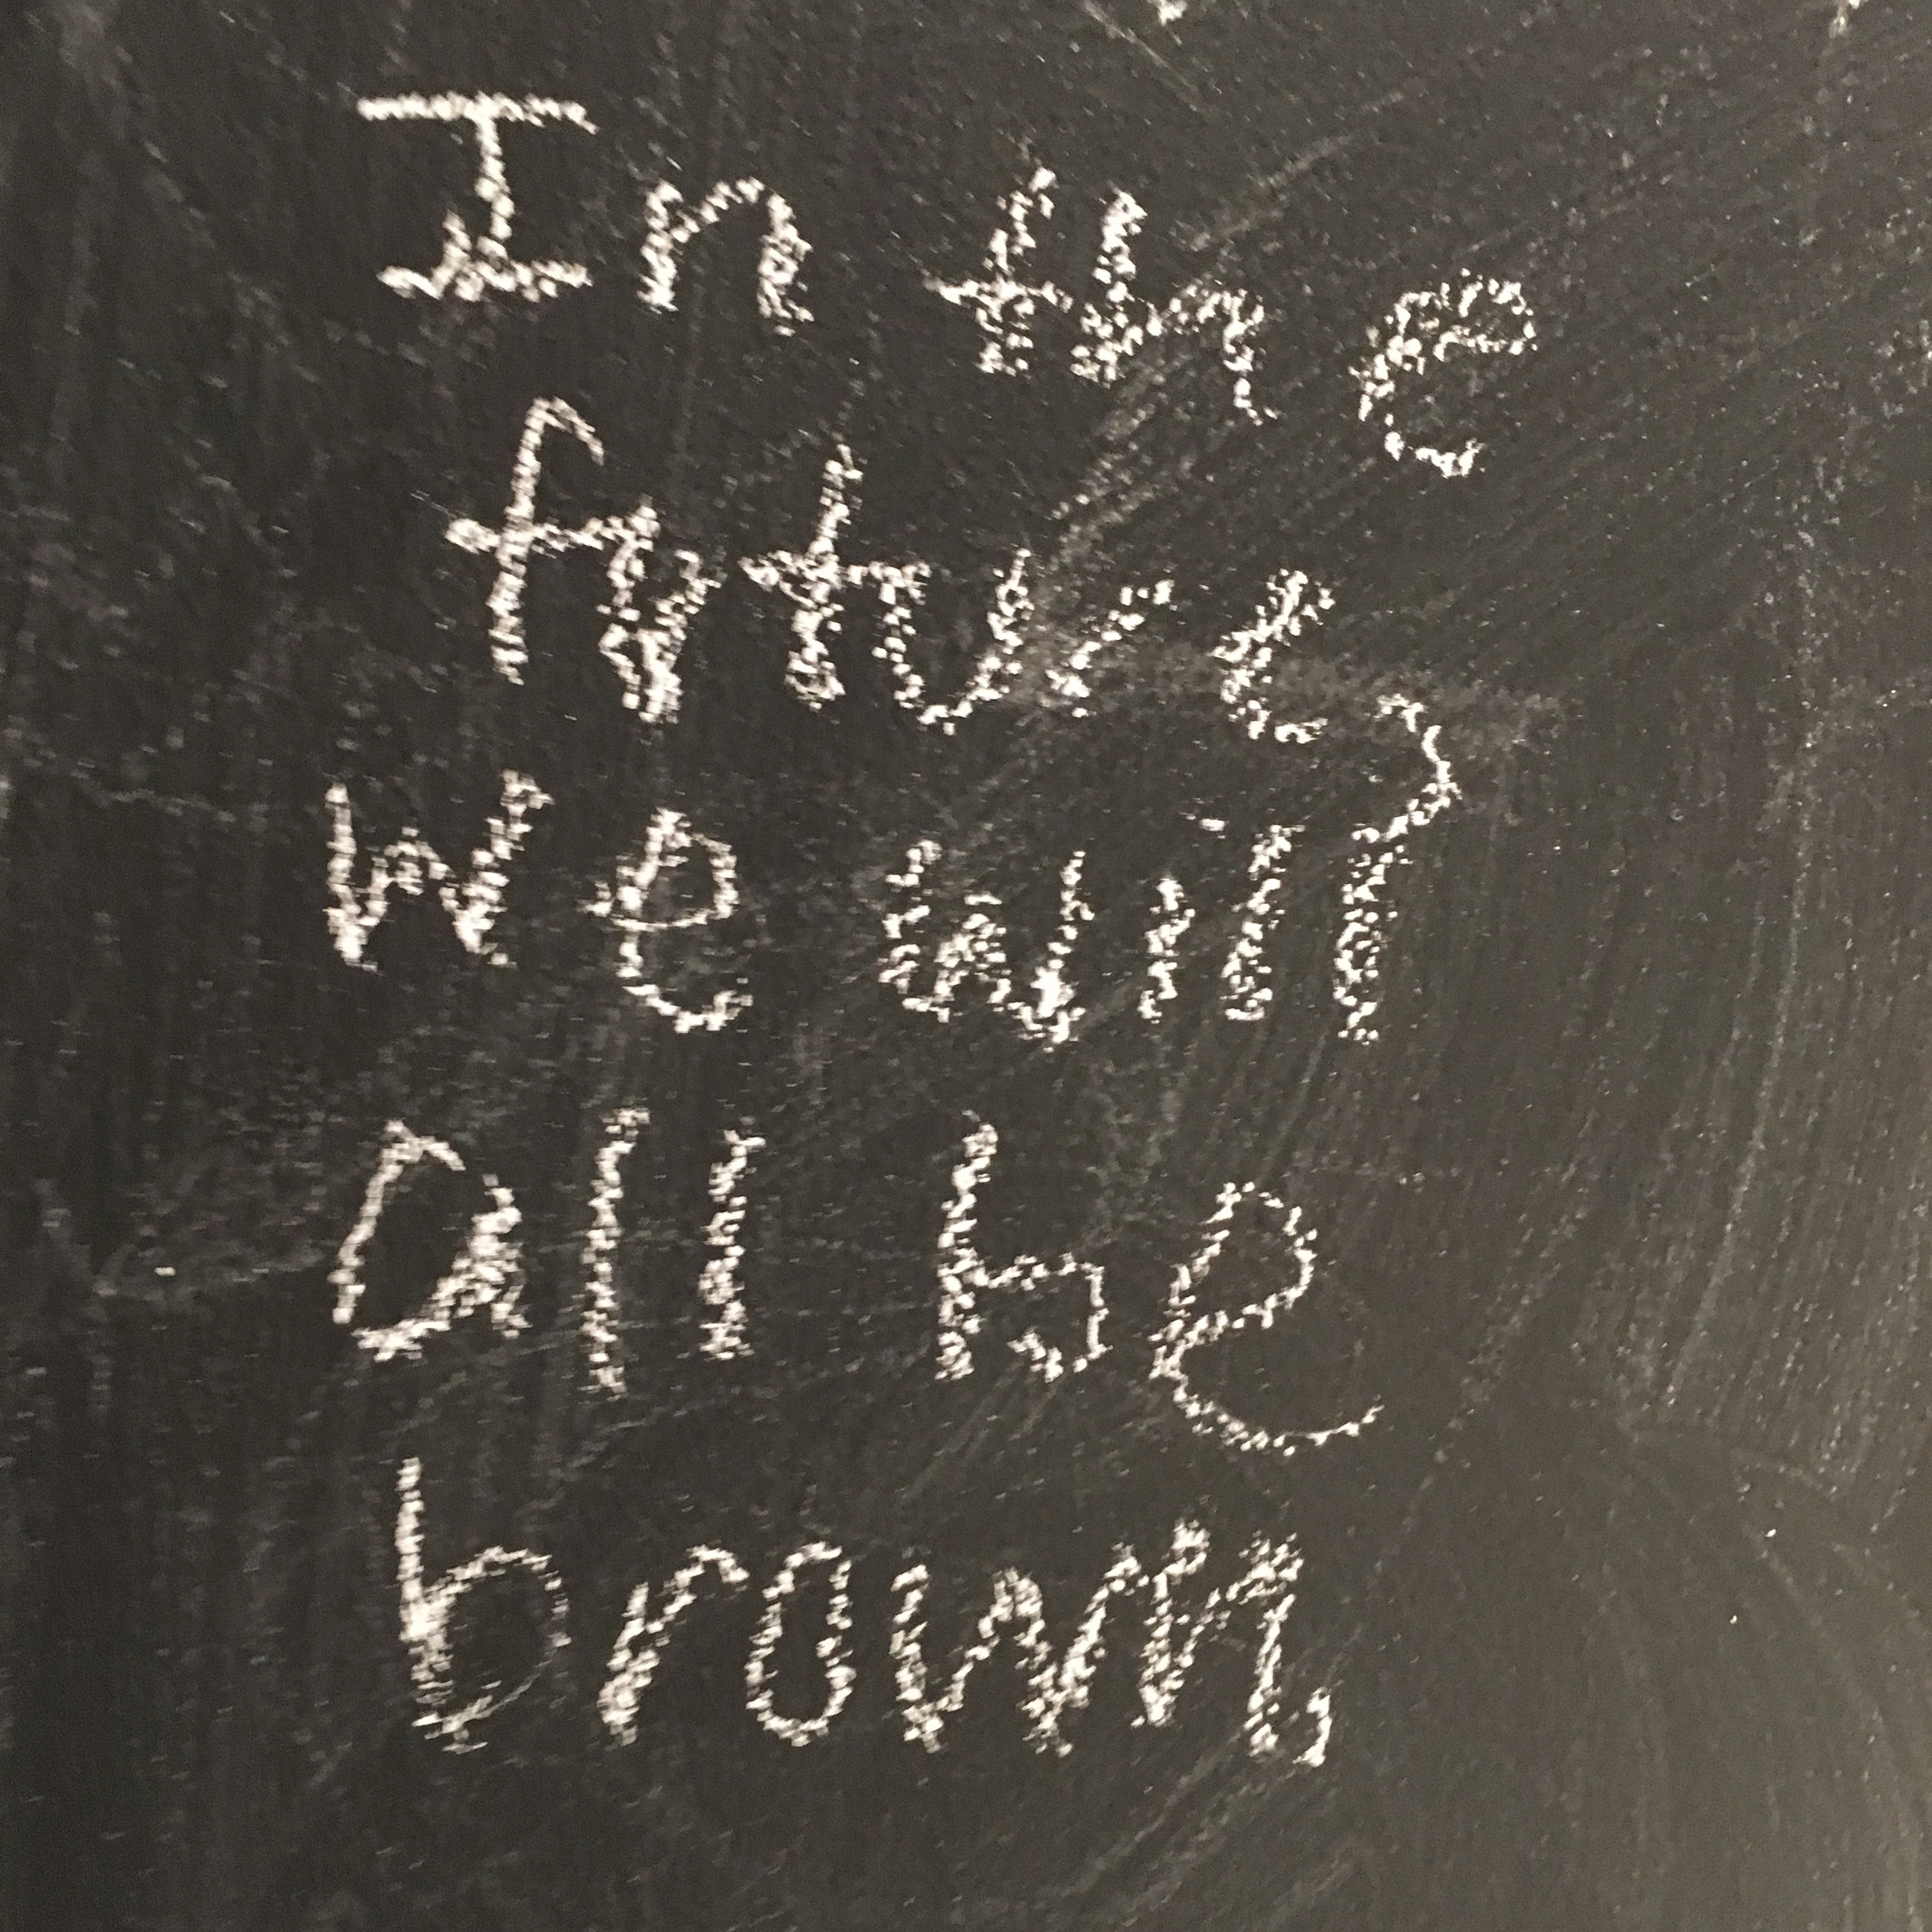 In the
future
we will
all be
brown.